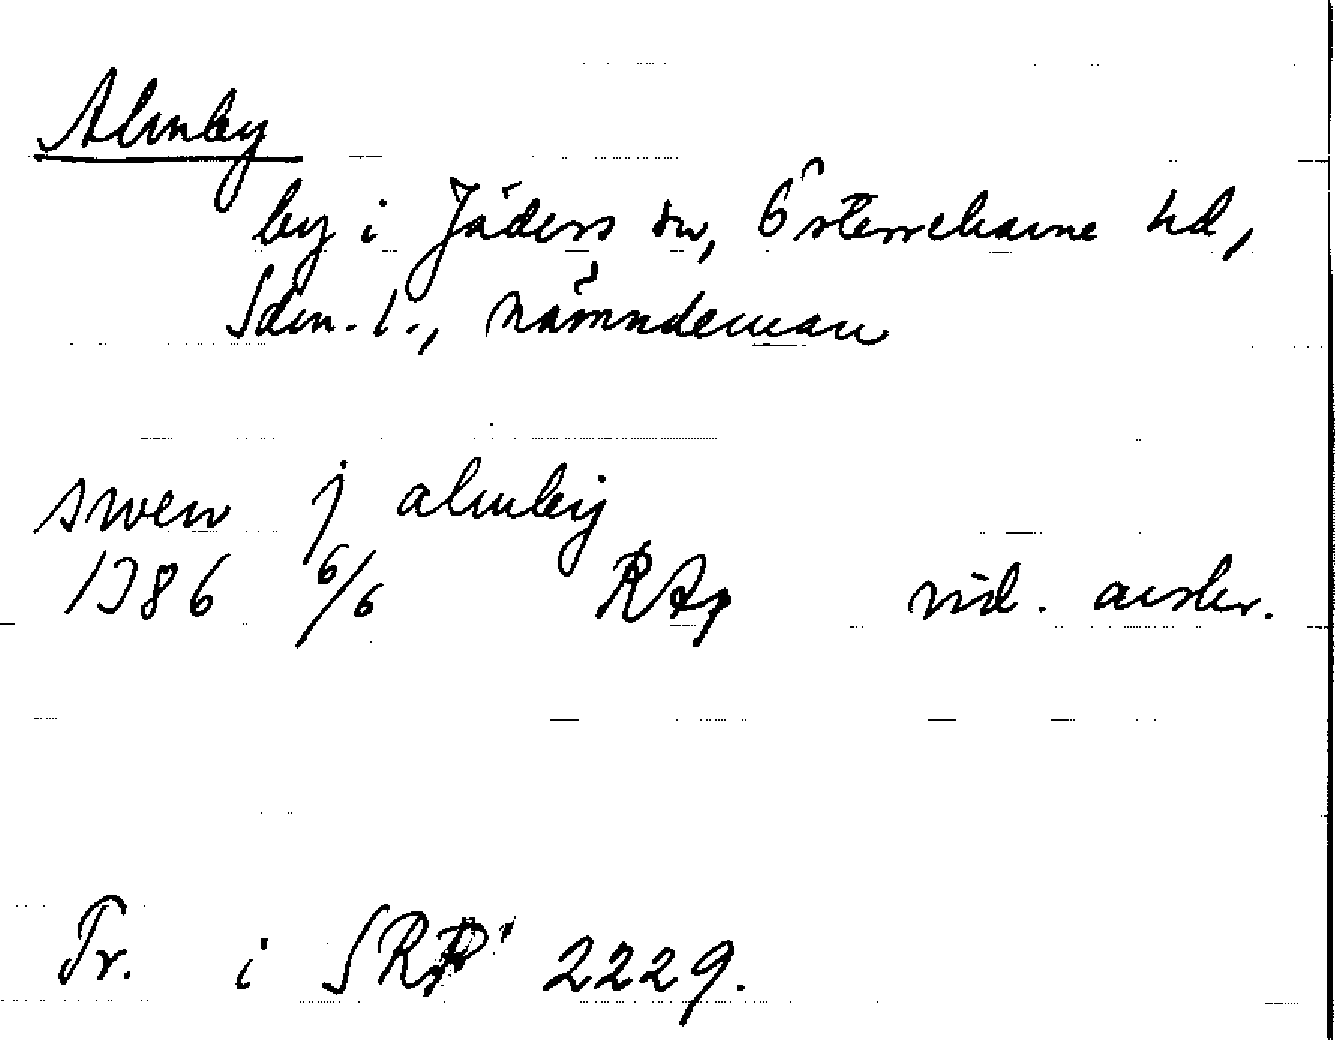 Almby
by i Jäders sn, Österrekarne hd,
Sdm. l., nämndeman
swen j almbij
1386 6/6 RAp vid. avskr.
Tr. i SRP 2229.